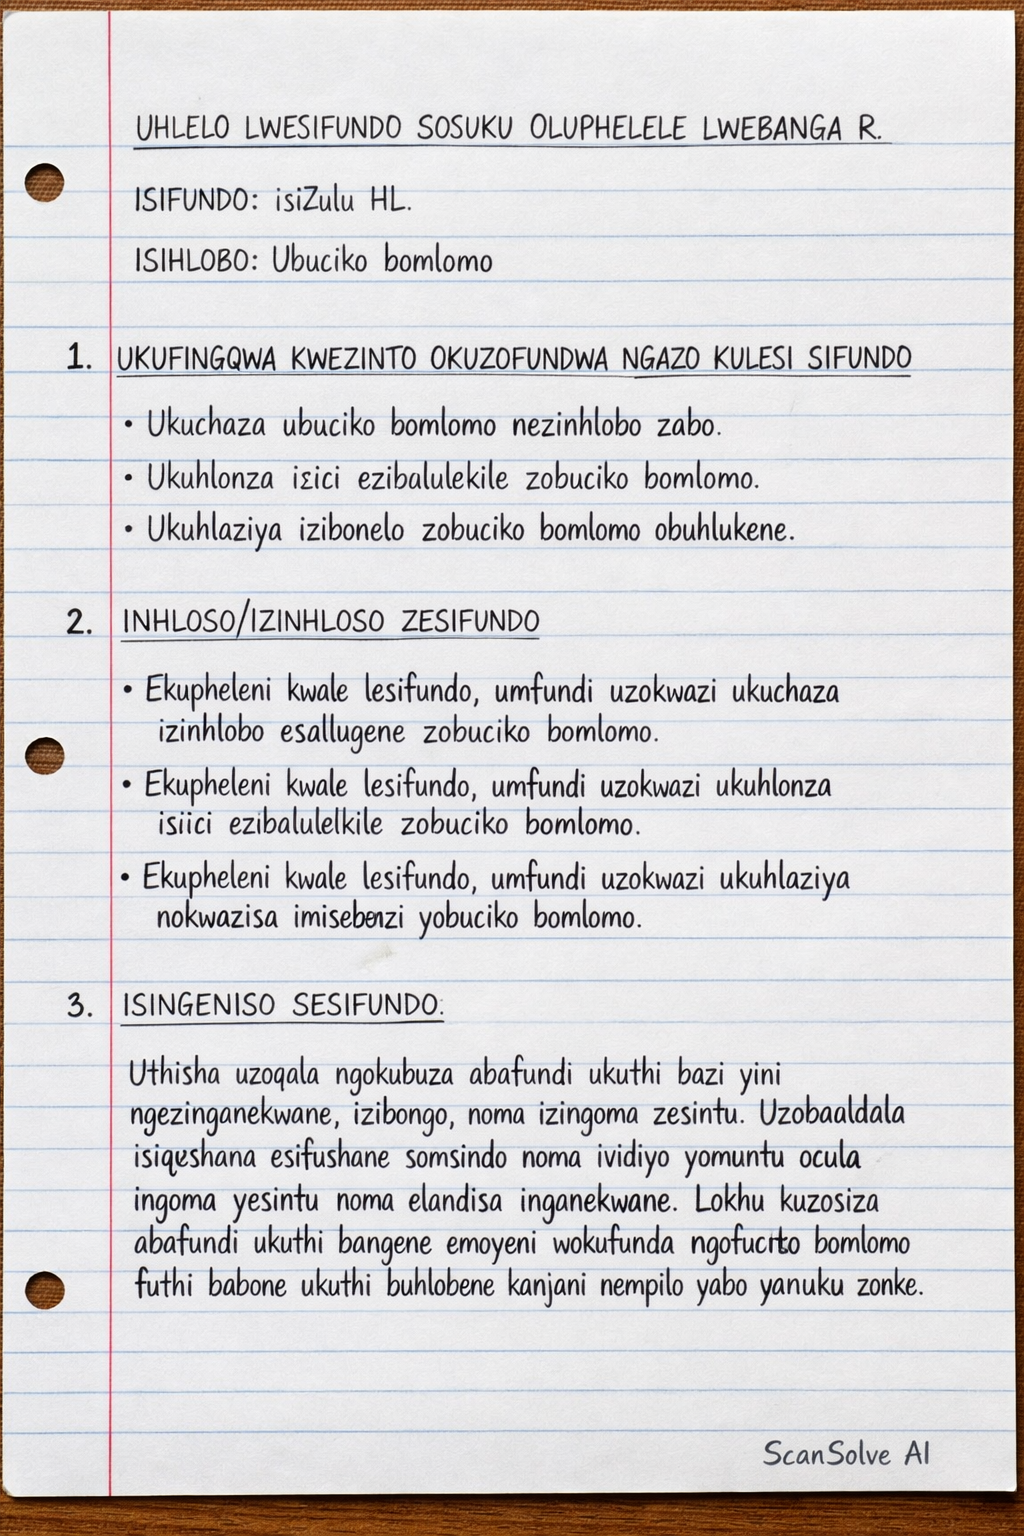 UHLELO LWESIFUNDO SOSUKU OLUPHELELE LWEBANGA R.
ISIFUNDO: isiZulu HL.
ISIHLOBO: Ubuciko bomlomo
1. UKUFINGQWA KWEZINTO OKUZOFUNDWA NGAZO KULESI SIFUNDO
• Ukuchaza ubuciko bomlomo nezinhlobo zabo.
• Ukuhlonza izici ezibalulekile zobuciko bomlomo.
• Ukuhlaziya izibonelo zobuciko bomlomo obuhlukene.
2. INHLOSO/IZINHLOSO ZESIFUNDO
• Ekupheleni kwale lesifundo, umfundi uzokwazi ukuchaza
izinhlobo esallugene zobuciko bomlomo.
• Ekupheleni kwale lesifundo, umfundi uzokwazi ukuhlonza
isiici ezibalulelkile zobuciko bomlomo.
• Ekupheleni kwale lesifundo, umfundi uzokwazi ukuhlaziya
nokwazisa imisebenzi yobuciko bomlomo.
3. ISINGENISO SESIFUNDO:
Uthisha uzoqala ngokubuza abafundi ukuthi bazi yini
ngezinganekwane, izibongo, noma izingoma zesintu. Uzobaaldala
isiqeshana esifushane somsindo noma ividiyo yomuntu ocula
ingoma yesintu noma elandisa inganekwane. Lokhu kuzosiza
abafundi ukuthi bangene emoyeni wokufunda bomlomo
futhi babone ukuthi buhlobene kanjani nempilo yabo yanuku zonke.
ScanSolve AI